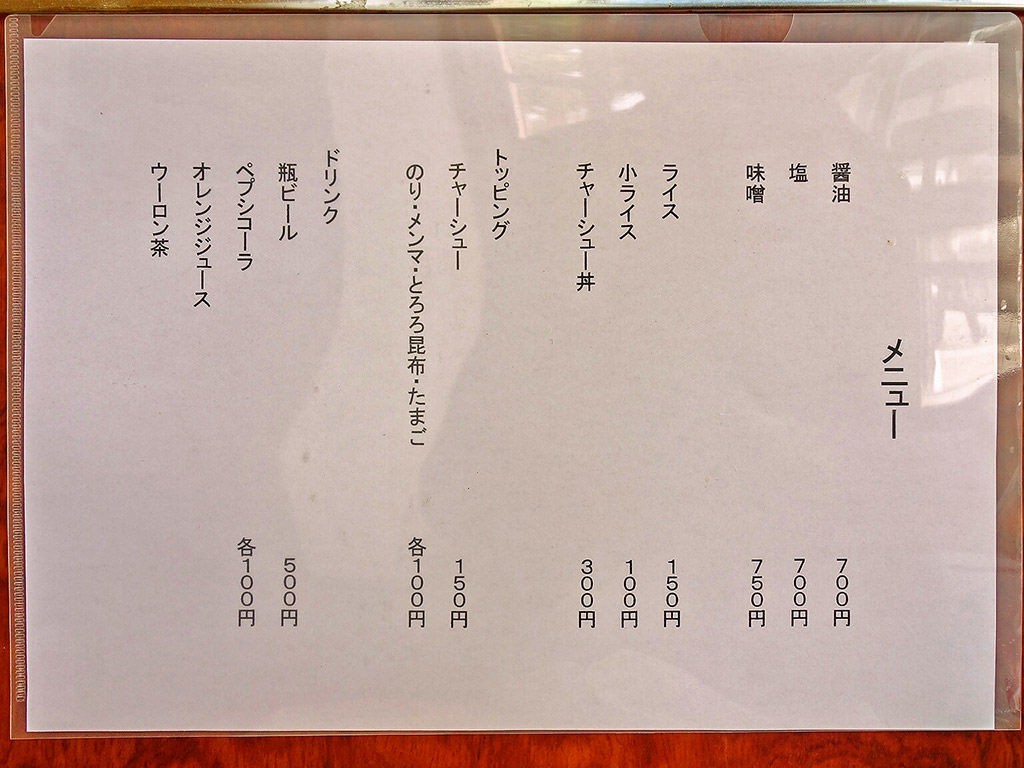 メニュー
醤油 700円
塩 700円
味噌 750円
ライス 150円
小ライス 100円
チャーシュー丼 300円
トッピング
チャーシュー 150円
のり・メンマ・とろろ昆布・たまご 各100円
ドリンク
瓶ビール 500円
ペプシコーラ 各100円
オレンジジュース
ウーロン茶